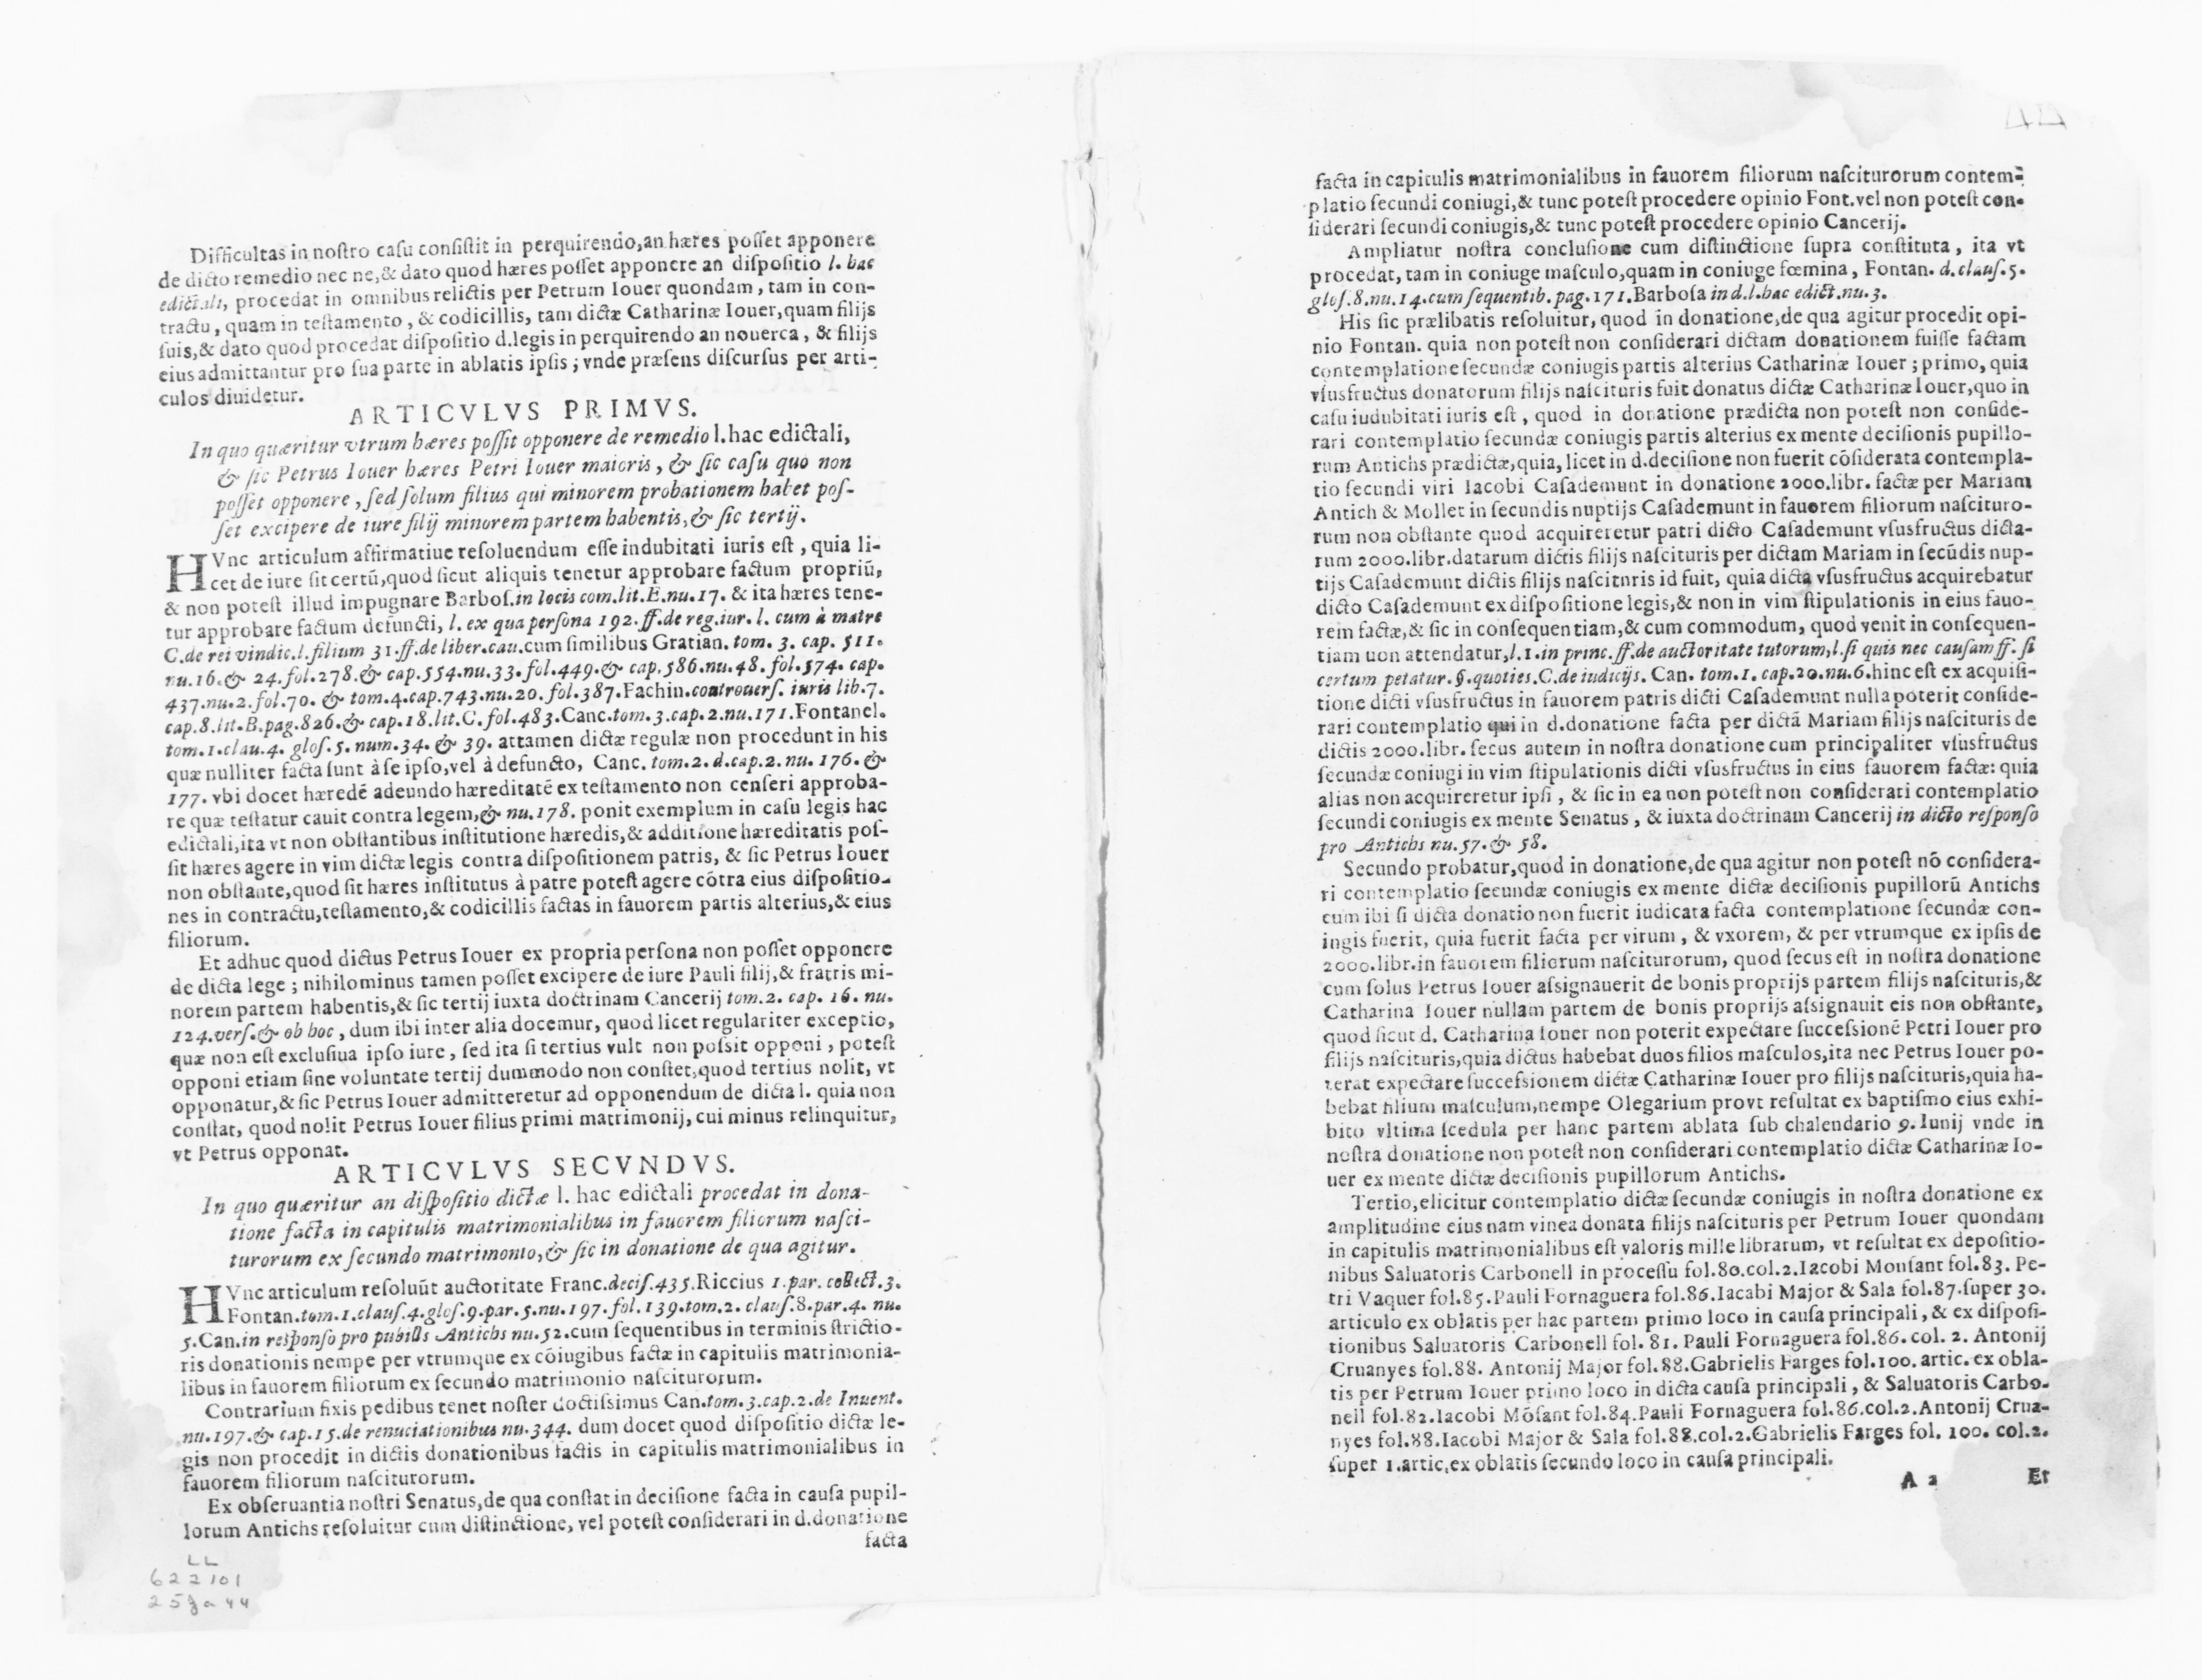 Difficultas in nostro casu consistit in perquirendo,an hæres posset apponere
de dicto remedio nec ne,& dato quod hæres posset apponere an dispositio l. hac
edictali, procedat in omnibus relictis per Petrum Iouer quondam, tam in con-
tractu, quam in testamento, & codicillis, tam dictæ Catharinæ Iouer,quam filijs
suis,& dato quod procedat dispositio d.legis in perquirendo an nouerca, & filijs
eius admittantur pro sua parte in ablatis ipsis; vnde præsens discursus per arti-
culos diuidetur.
ARTICVLVS PRIMVS.
In quo quæritur vtrum hæres possit opponere de remedio l.hac edictali,
& sic Petrus Iouer hæres Petri Iouer maioris, & sic casu quo non
posset opponere, sed solum filius qui minorem probationem habet pos-
set excipere de iure filij minorem partem habentis,& sic tertij.
HVnc articulum affirmatiue resoluendum esse indubitati iuris est, quia li-
cet de iure sit certũ,quod sicut aliquis tenetur approbare factum propriũ,
& non potest illud impugnare Barbos.in locis com.lit.E.nu.17. & ita hæres tene-
tur approbare factum defuncti, l. ex qua persona 192.ff.de reg.iur. l. cum à matre
C.de rei vindic.l.filium 31.ff.de liber.cau.cum similibus Gratian. tom. 3. cap. 511.
nu.16.& 24.fol.278.& cap.554.nu.33.fol.449.& cap.586.nu.48. fol.574. cap.
437.nu.2.fol.70. & tom.4.cap.743.nu.20. fol.387.Fachin.controuers. iuris lib.7.
cap.8.lit.B.pag.826.& cap.18.lit.C.fol.483.Canc.tom.3.cap.2.nu.171.Fontanel.
tom.1.clau.4. glos.5. num.34. & 39. attamen dictæ regulæ non procedunt in his
quæ nulliter facta sunt à se ipso,vel à defuncto, Canc. tom.2. d.cap.2. nu. 176. &
177. vbi docet hæredẽ adeundo hæreditatẽ ex testamento non censeri approba-
re quæ testatur cauit contra legem,& nu.178. ponit exemplum in casu legis hac
edictali,ita vt non obstantibus institutione hæredis,& additione hæreditatis pos-
sit hæres agere in vim dictæ legis contra dispositionem patris, & sic Petrus Iouer
non obstante,quod sit hæres institutus à patre potest agere cõtra eius dispositio-
nes in contractu,testamento,& codicillis factas in fauorem partis alterius,& eius
filiorum.
Et adhuc quod dictus Petrus Iouer ex propria persona non posset opponere
de dicta lege; nihilominus tamen posset excipere de iure Pauli filij,& fratris mi-
norem partem habentis,& sic tertij iuxta doctrinam Cancerij tom.2. cap. 16. nu.
124.vers.& ob hoc, dum ibi inter alia docemur, quod licet regulariter exceptio,
quæ non est exclusiua ipso iure, sed ita si tertius vult non possit opponi, potest
opponi etiam sine voluntate tertij dummodo non constet,quod tertius nolit, vt
opponatur,& sic Petrus Iouer admitteretur ad opponendum de dicta l. quia non
constat, quod nolit Petrus Iouer filius primi matrimonij, cui minus relinquitur,
vt Petrus opponat.
ARTICVLVS SECVNDVS.
In quo quæritur an dispositio dictæ l. hac edictali procedat in dona-
tione facta in capitulis matrimonialibus in fauorem filiorum nasci-
turorum ex secundo matrimonio,& sic in donatione de qua agitur.
HVnc articulum resoluũt auctoritate Franc.decis.435.Riccius 1.par. collect.3.
Fontan.tom.1.claus.4.glos.9.par.5.nu.197.fol.139.tom.2. claus.8.par.4. nu.
5.Can.in responso pro pubillis Antichs nu.52.cum sequentibus in terminis strictio-
ris donationis nempe per vtrumque ex cõiugibus factæ in capitulis matrimonia-
libus in fauorem filiorum ex secundo matrimonio nasciturorum.
Contrarium fixis pedibus tenet noster doctissimus Can.tom.3.cap.2.de Inuent.
nu.197.& cap.15.de renuciationibus nu.344. dum docet quod dispositio dictæ le-
gis non procedit in dictis donationibus factis in capitulis matrimonialibus in
fauorem filiorum nasciturorum.
Ex obseruantia nostri Senatus,de qua constat in decisione facta in causa pupil-
lorum Antichs resoluitur cum distinctione, vel potest considerari in d.donatione
facta
LL
622101
25ga44
facta in capitulis matrimonialibus in fauorem filiorum nasciturorum contem-
platio secundi coniugi,& tunc potest procedere opinio Font.vel non potest con-
siderari secundi coniugis,& tunc potest procedere opinio Cancerij.
Ampliatur nostra conclusione cum distinctione supra constituta, ita vt
procedat, tam in coniuge masculo,quam in coniuge fœmina, Fontan. d.claus.5.
glos.8.nu.14.cum sequentib.pag.171.Barbosa in d.l.hac edict.nu.3.
His sic prælibatis resoluitur, quod in donatione,de qua agitur procedit opi-
nio Fontan. quia non potest non considerari dictam donationem fuisse factam
contemplatione secundæ coniugis partis alterius Catharinæ Iouer; primo, quia
vsusfructus donatorum filijs nascituris fuit donatus dictæ Catharinæ Iouer,quo in
casu iudubitati iuris est, quod in donatione prædicta non potest non conside-
rari contemplatio secundæ coniugis partis alterius ex mente decisionis pupillo-
rum Antichs prædictæ,quia, licet in d.decisione non fuerit cõsiderata contempla-
tio secundi viri Iacobi Casademunt in donatione 2000.libr. factæ per Mariam
Antich & Mollet in secundis nuptijs Casademunt in fauorem filiorum nascituro-
rum non obstante quod acquireretur patri dicto Casademunt vsusfructus dicta-
rum 2000.libr.datarum dictis filijs nascituris per dictam Mariam in secũdis nup-
tijs Casademunt dictis filijs nascitnris id fuit, quia dicta vsusfructus acquirebatur
dicto Casademunt ex dispositione legis,& non in vim stipulationis in eius fauo-
rem factæ,& sic in consequentiam,& cum commodum, quod venit in consequen-
tiam uon attendatur,l.1.in princ.ff.de auctoritate tutorum,l.si quis nec causam ff. si
certum petatur.§.quoties.C.de iudicijs. Can. tom.1. cap.20.nu.6.hinc est ex acquisi-
tione dicti vsusfructus in fauorem patris dicti Casademunt nulla poterit conside-
rari contemplatio qui in d.donatione facta per dictã Mariam filijs nascituris de
dictis 2000.libr. secus autem in nostra donatione cum principaliter vsusfructus
secundæ coniugi in vim stipulationis dicti vsusfructus in eius fauorem factæ: quia
alias non acquireretur ipsi, & sic in ea non potest non considerati contemplatio
secundi coniugis ex mente Senatus, & iuxta doctrinam Cancerij in dicto responso
pro Antichs nu.57.& 58.
Secundo probatur,quod in donatione,de qua agitur non potest nõ considera-
ri contemplatio secundæ coniugis ex mente dictæ decisionis pupillorũ Antichs
cum ibi si dicta donatio non fuerit iudicata facta contemplatione secundæ con-
ingis fuerit, quia fuerit facta per virum, & vxorem, & per vtrumque ex ipsis de
2000.libr.in fauorem filiorum nasciturorum, quod secus est in nostra donatione
cum solus Petrus Iouer assignauerit de bonis proprijs partem filijs nascituris,&
Catharina Iouer nullam partem de bonis proprijs assignauit eis non obstante,
quod sicut d. Catharina Iouer non poterit expectare successionẽ Petri Iouer pro
filijs nascituris,quia dictus habebat duos filios masculos,ita nec Petrus Iouer po-
terat expectare successionem dictæ Catharinæ Iouer pro filijs nascituris,quia ha-
bebat filium masculum,nempe Olegarium provt resultat ex baptismo eius exhi-
bito vltima scedula per hanc partem ablata sub chalendario 9. Iunij vnde in
nostra donatione non potest non considerari contemplatio dictæ Catharinæ Io-
uer ex mente dictæ decisionis pupillorum Antichs.
Tertio,elicitur contemplatio dictæ secundæ coniugis in nostra donatione ex
amplitudine eius nam vinea donata filijs nascituris per Petrum Iouer quondam
in capitulis matrimonialibus est valoris mille librarum, vt resultat ex depositio-
nibus Saluatoris Carbonell in processu fol.80.col.2.Iacobi Monsant fol.83. Pe-
tri Vaquer fol.85.Pauli Fornaguera fol.86.Iacabi Major & Sala fol.87.super 30.
articulo ex oblatis per hac partem primo loco in causa principali, & ex disposi-
tionibus Saluatoris Carbonell fol. 81. Pauli Fornaguera fol.86. col. 2. Antonij
Cruanyes fol.88. Antonij Major fol.88.Gabrielis Farges fol.100. artic. ex obla-
tis per Petrum Iouer primo loco in dicta causa principali, & Saluatoris Carbo-
nell fol.82.Iacobi Mõsant fol.84.Pauli Fornaguera fol.86.col.2.Antonij Crua-
nyes fol.88.Iacobi Major & Sala fol.88.col.2.Gabrielis Farges fol. 100. col.2.
super 1.artic,ex oblatis secundo loco in causa principali.
A 2 Et